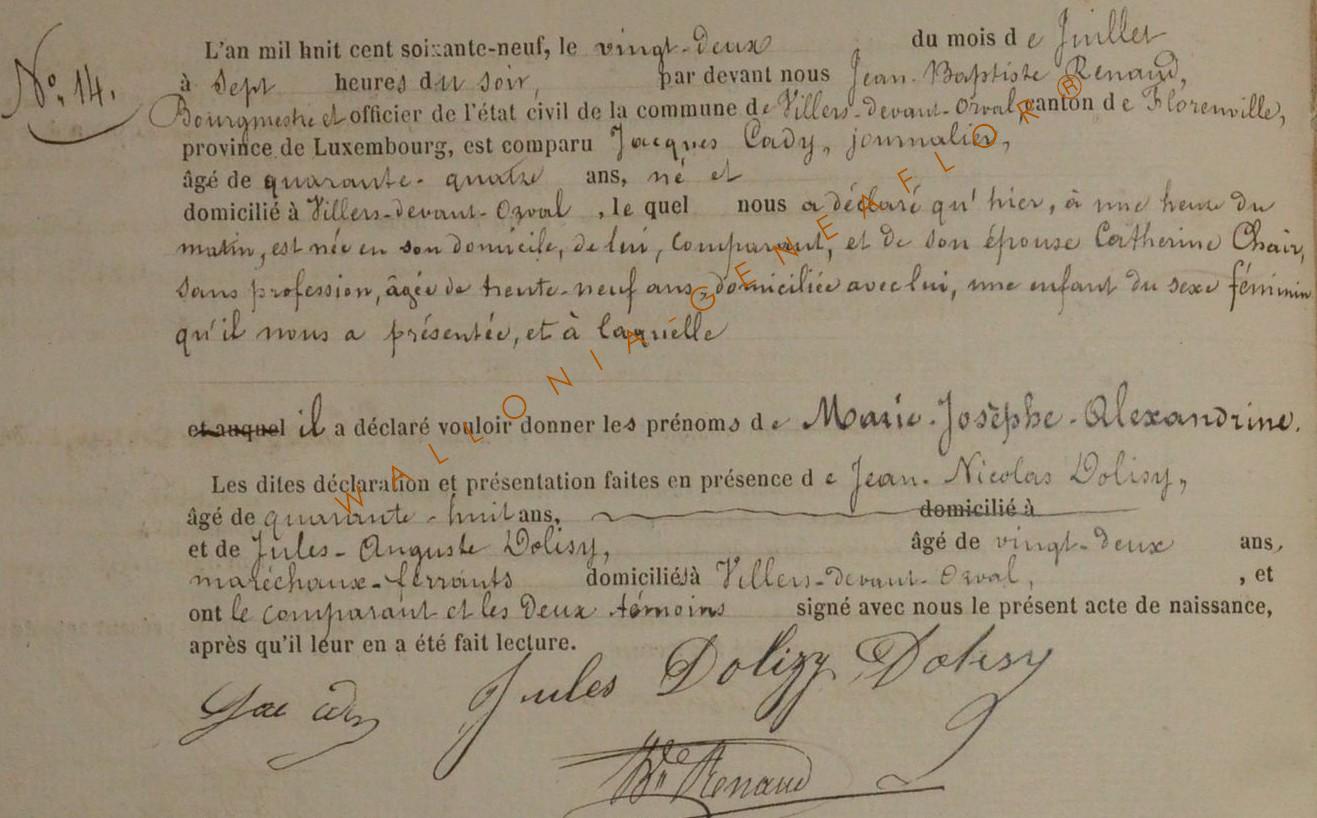 L'an mil huit cent soixante-neuf, le vingt-deux du mois de Juillet
N° 14. à Sept heures du soir, par devant nous Jean-Baptiste Renaud,
Bourgmestre et officier de l'état civil de la commune de Villers-devant-Orval canton de Florenville,
province de Luxembourg, est comparu Jacques Cady, journalier,
âgé de quarante-quatre ans, né et
domicilié à Villers-devant-Orval, le quel nous a déclaré qu'hier, à une heure du
matin, est née en son domicile, de lui, comparant, et de son épouse Catherine Chair,
sans profession, âgée de trente-neuf ans, domiciliée avec lui, une enfant du sexe féminin
qu'il nous a présentée, et à laquelle
et auquel il a déclaré vouloir donner les prénoms de Marie-Josèphe-Alexandrine.
Les dites déclaration et présentation faites en présence de Jean-Nicolas Dolisy,
âgé de quarante-huit ans, domicilié à
et de Jules-Auguste Dolisy, âgé de vingt-deux ans,
maréchaux-ferrants domiciliés à Villers-devant-Orval, , et
ont le comparant et les deux témoins signé avec nous le présent acte de naissance,
après qu'il leur en a été fait lecture.
Jules Dolizy Dolisy
Renaud
WALLONIA GENEAFLOR ®